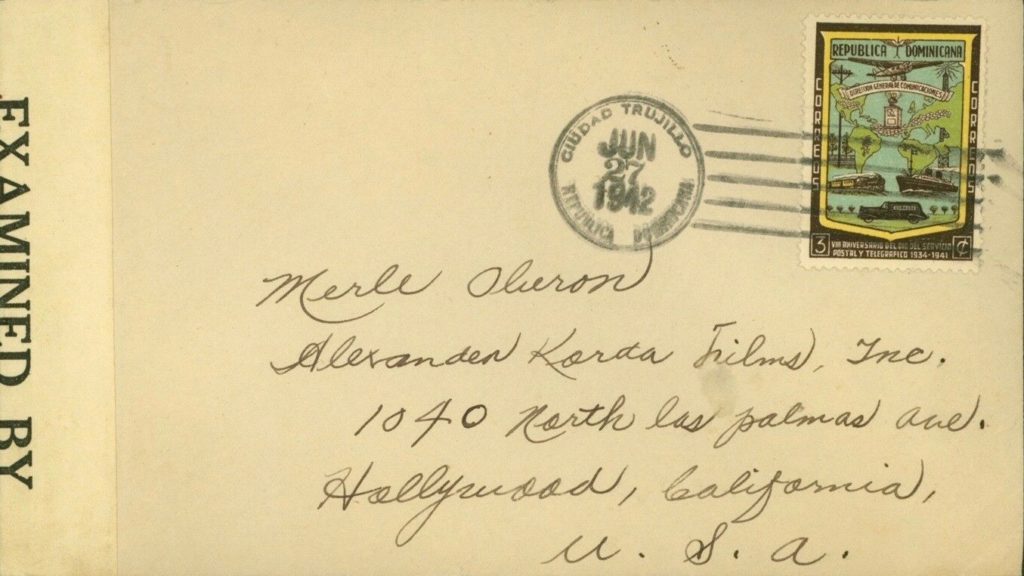 EXAMINED BY
REPUBLICA DOMINICANA
DIRECCION GENERAL DE COMUNICACIONES
CORREOS
CORREOS
3 VIII ANIVERSARIO DEL DIA DEL SERVICIO
POSTAL Y TELEGRAFICO 1934-1941 ¢
CIUDAD TRUJILLO
JUN
27
1942
REPUBLICA DOMINICANA
Merle Oberon
Alexander Korda Films, Inc.
1040 North las palmas ave.
Hollywood, California,
U. S. A.